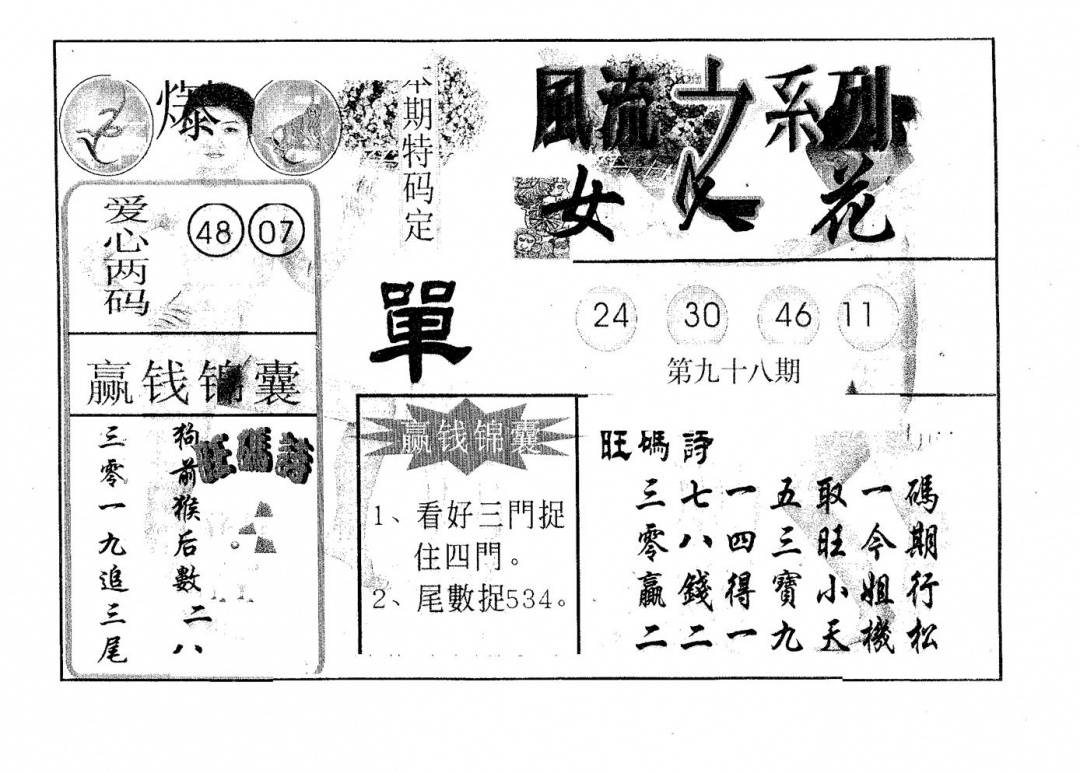 爆
本期特码定
風流之系列
女人花
爱心两码
48 07
單
24 30 46 11
第九十八期
赢钱锦囊
旺碼詩
狗前猴后數二八
三零一九追三尾
赢钱锦囊
1、看好三門捉
住四門。
2、尾數捉534。
旺碼詩
三七一五取一碼
零八四三旺今期
贏錢得寶小姐行
二二一九天機松